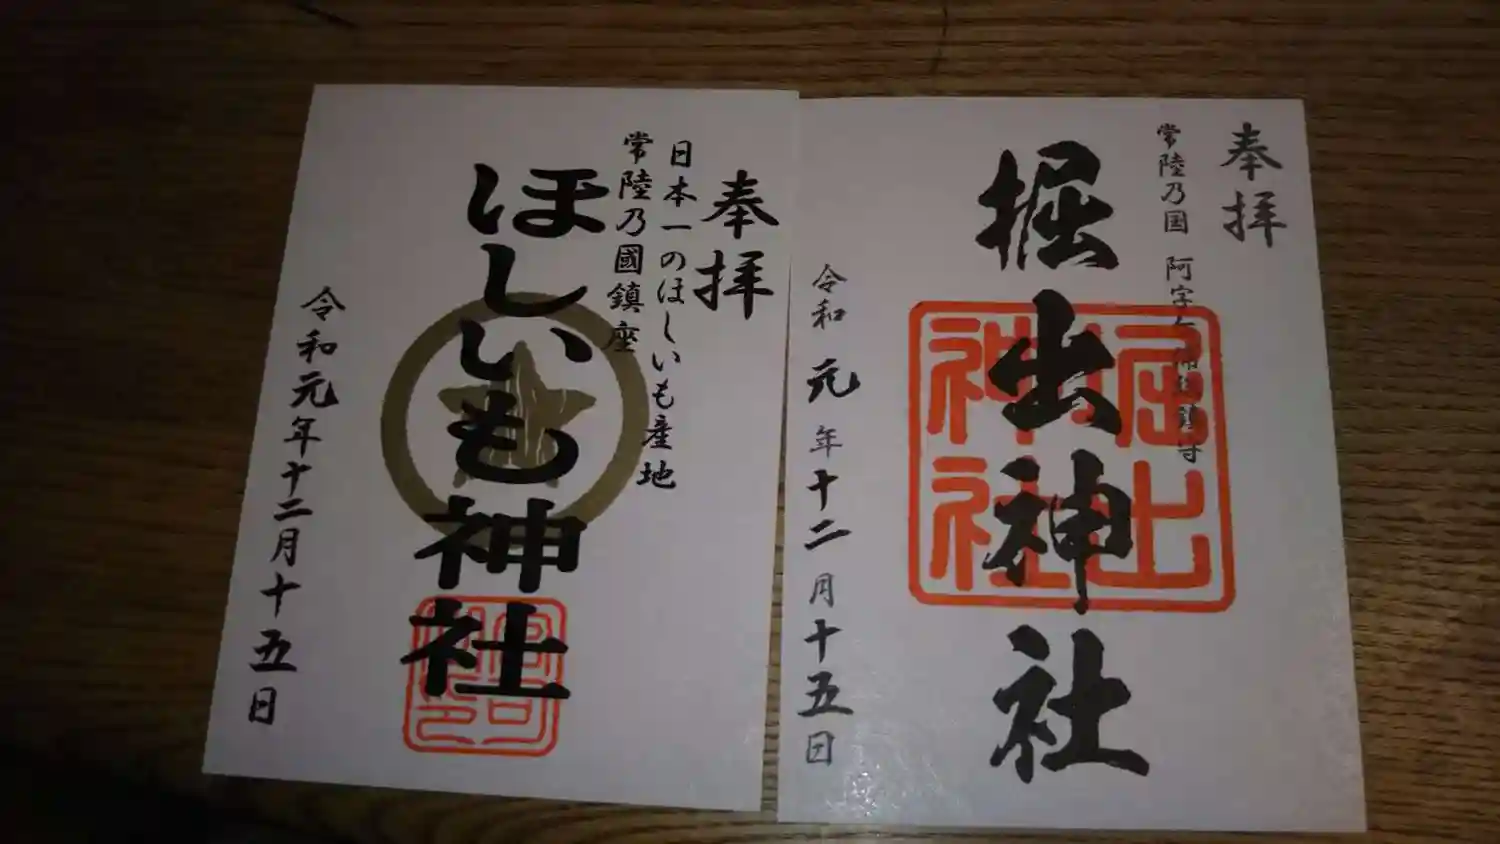 奉拝
日本一のほしいも産地
常陸乃國鎮座
ほしいも神社
令和元年十二月十五日
奉拝
常陸乃国 阿字
鎮守
掘出神社
掘出
神社
令和元年十二月十五日